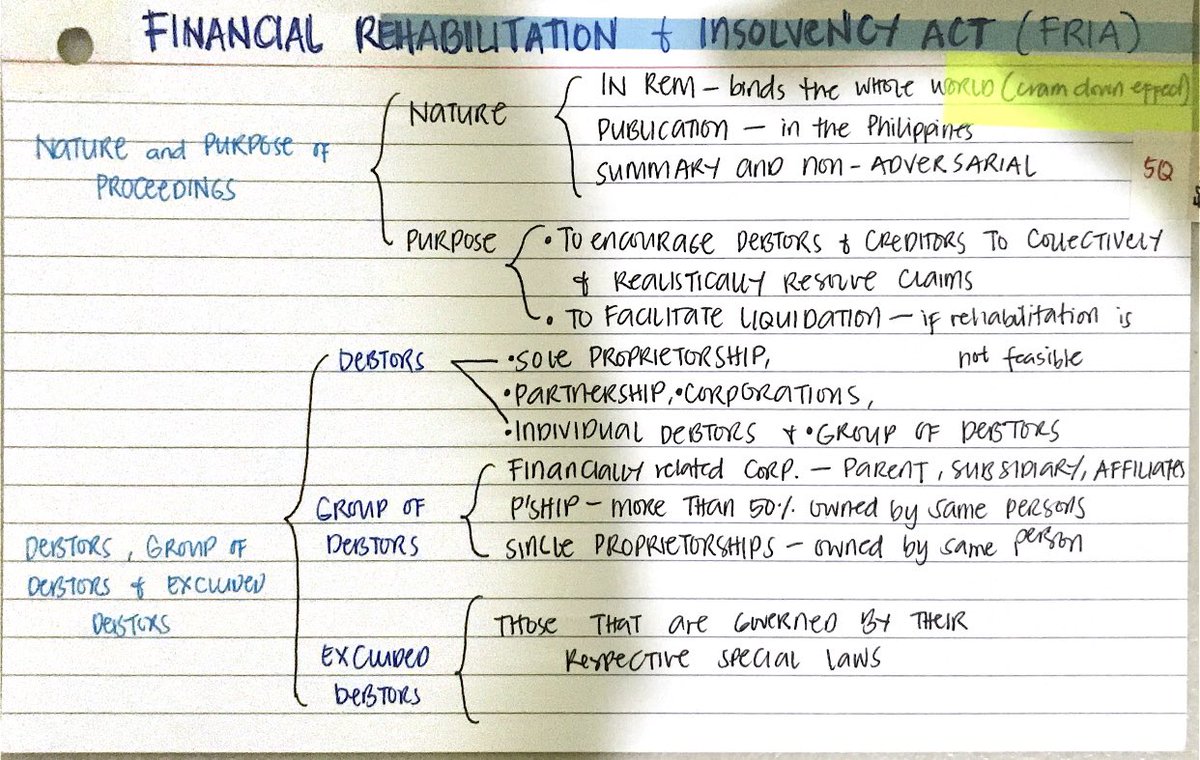 FINANCIAL REHABILITATION & INSOLVENCY ACT (FRIA)
NATURE and PURPOSE OF
PROCEEDINGS
NATURE
IN REM – binds the whole WORLD (cram down effect)
PUBLICATION – in the Philippines
SUMMARY AND NON-ADVERSARIAL
5Q
PURPOSE
• TO ENCOURAGE DEBTORS & CREDITORS TO COLLECTIVELY
& REALISTICALLY RESOLVE CLAIMS
• TO FACILITATE LIQUIDATION – if rehabilitation is
not feasible
DEBTORS, GROUP OF
DEBTORS & EXCLUDED
DEBTORS
DEBTORS
• SOLE PROPRIETORSHIP,
• PARTNERSHIP, • CORPORATIONS,
• INDIVIDUAL DEBTORS & • GROUP OF DEBTORS
GROUP OF
DEBTORS
FINANCIALLY related CORP. – PARENT, SUBSIDIARY, AFFILIATES
P'SHIP – MORE THAN 50% owned by same persons
SINGLE PROPRIETORSHIPS – owned by same person
EXCLUDED
DEBTORS
THOSE THAT ARE GOVERNED BY THEIR
RESPECTIVE SPECIAL LAWS